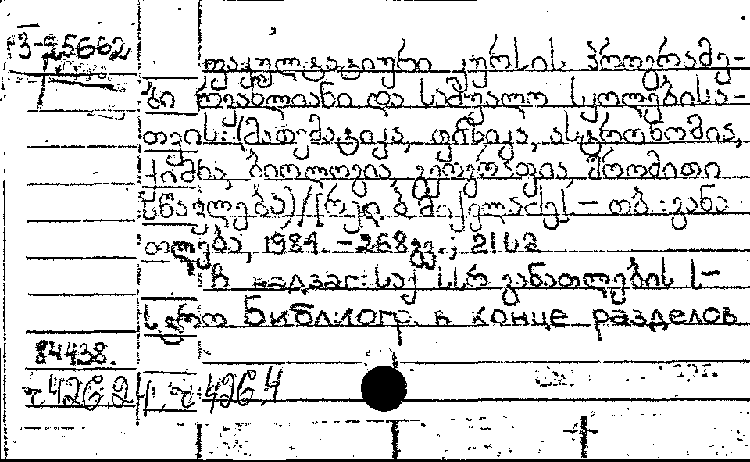 პ-25662
ფაკულტატიური კურსის პროგრამე-
ბი რვაწლიანი და საშუალო სკოლებისა-
თვის: (მათემატიკა, ფიზიკა, ასტრონომია,
ქიმია, ბიოლოგია გეოგრაფია შრომითი
სწავლება)/[რედ. ბ მიქელაძე] – თბ.: განა
თლება, 1984. – 268 გვ.; 21 სმ
В надзаг: საქ სსრ განათლების ს-
სტრო Библиогр. в конце разделов
84438.
426.24. 426.4